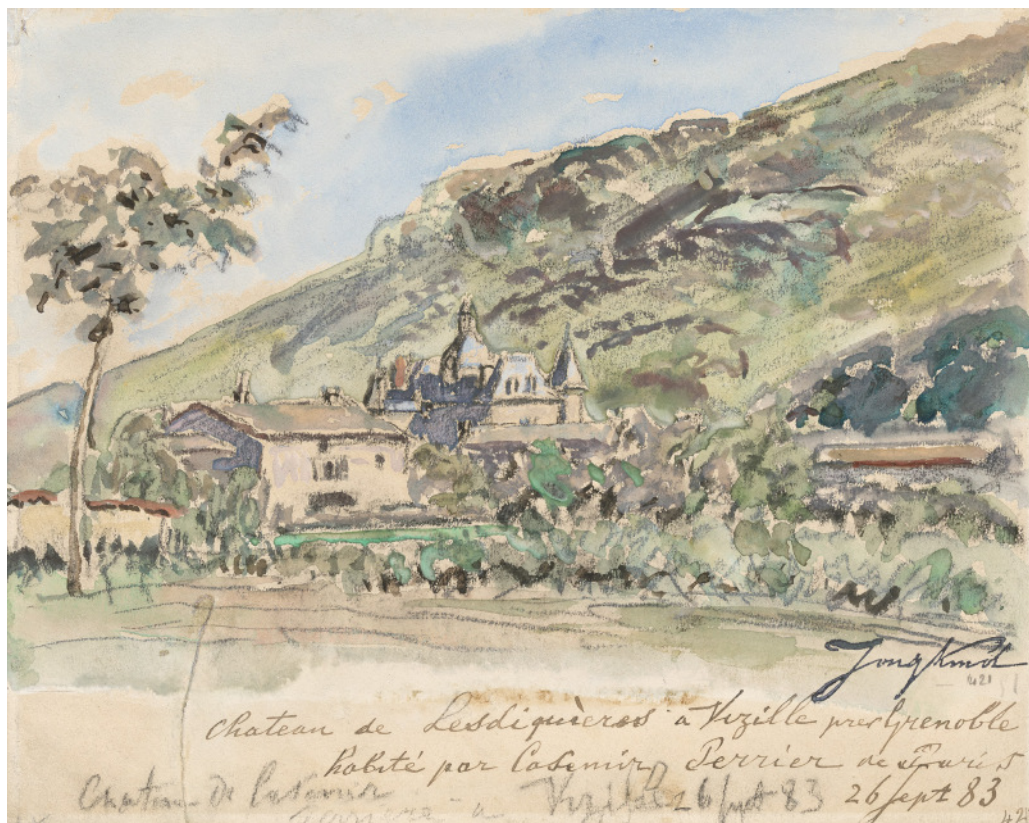 Jongkind
421
chateau de Lesdiquieres a Vizille pres Grenoble
habité par Casemir Perrier de Paris
26 sept 83
Chateau de Casemir
a Vizille 26 sept 83
42